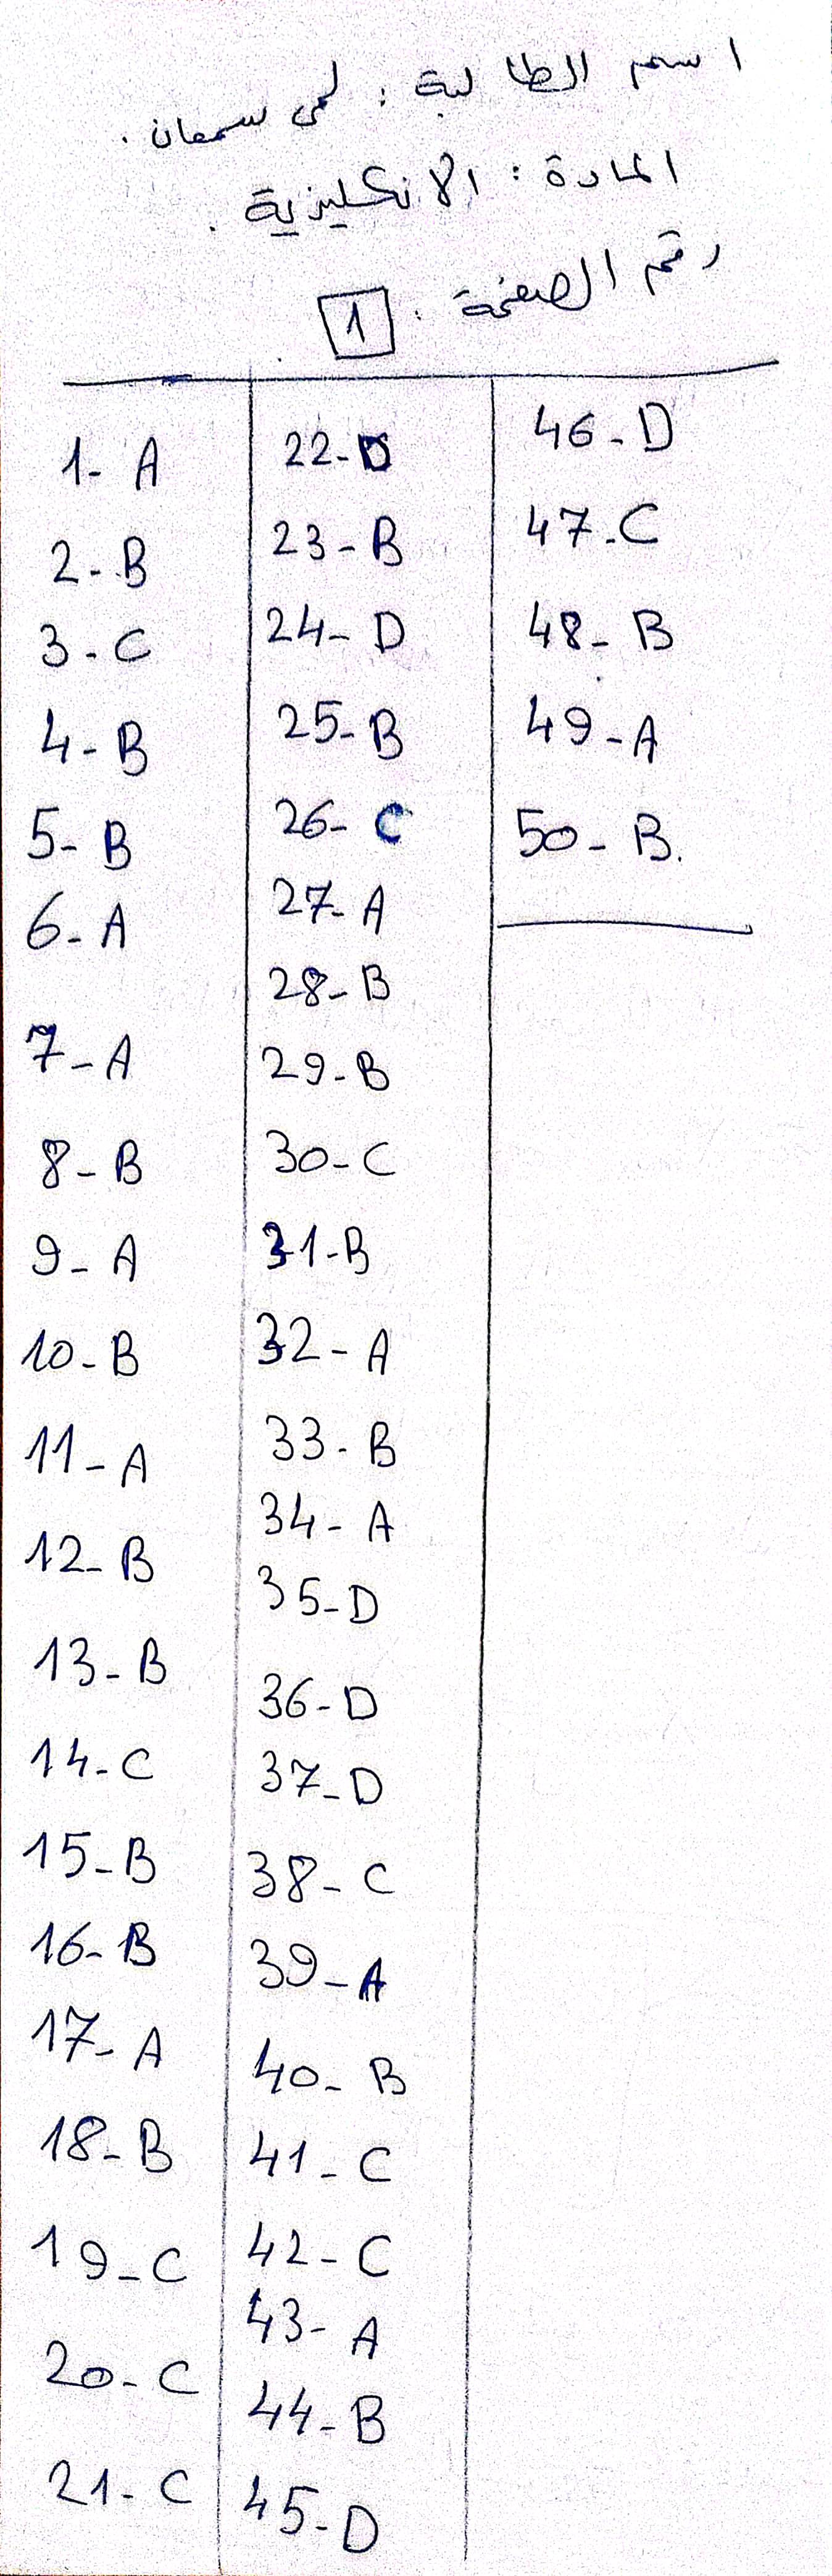 اسم الطالبة : لمى سمعان .
المادة : الانكليزية .
رقم الصفحة . 1
1- A
2- B
3- C
4- B
5- B
6- A
7- A
8- B
9- A
10- B
11- A
12- B
13- B
14- C
15- B
16- B
17- A
18- B
19- C
20- C
21- C
22- D
23- B
24- D
25- B
26- C
27- A
28- B
29- B
30- C
31- B
32- A
33- B
34- A
35- D
36- D
37- D
38- C
39- A
40- B
41- C
42- C
43- A
44- B
45- D
46- D
47- C
48- B
49- A
50- B.